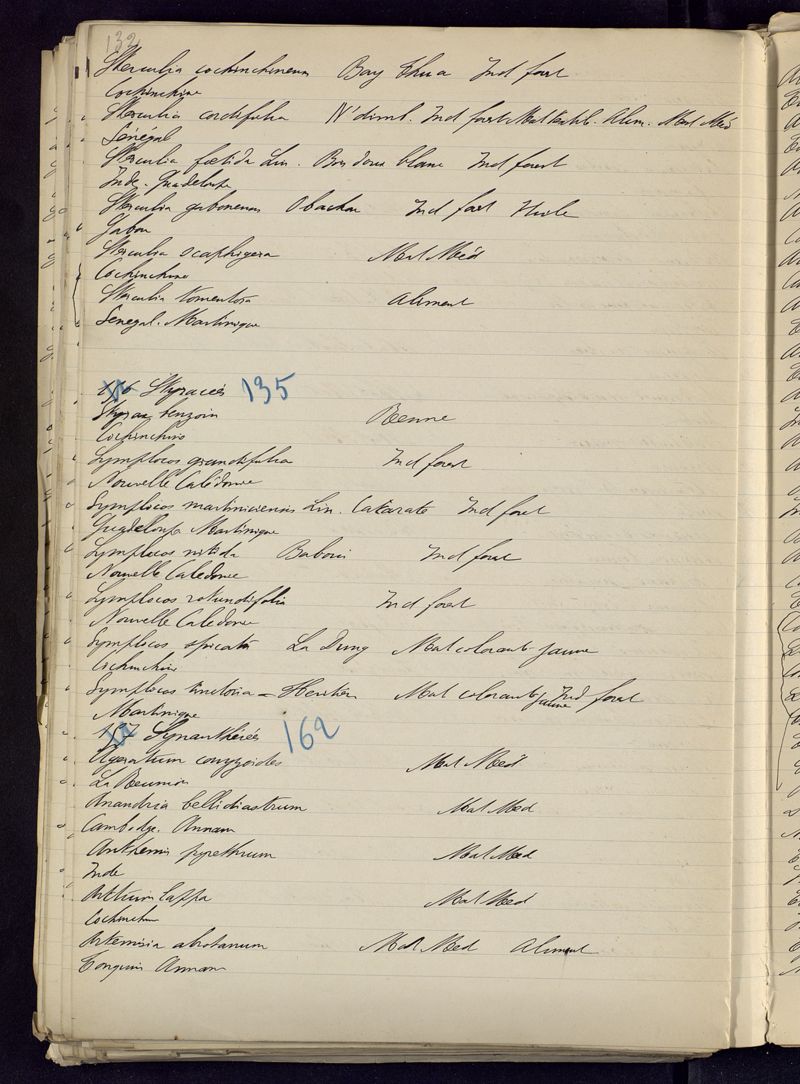 132
Sterculia cochinchinensis Bay Thua Ind forest
Cochinchine
Sterculia cordifolia N'dimb. Ind forest Mat textile. Alim. Mat Méd
Sénégal
Sterculia foetida Lin. Bois doux blanc Ind forest
Inde. Guadeloupe
Sterculia gabonensis Ind forest Huile
Gabon
Sterculia scaphigera Mat Méd
Cochinchine
Sterculia tomentosa Aliment
Sénégal. Martinique
Styracées 135
Styrax benzoin
Cochinchine
Symplocos grandifolia Ind forest
Nouvelle Calédonie
Symplocos martinicensis Lin. Ind forest
Guadeloupe Martinique
Symplocos nitida Ind forest
Nouvelle Calédonie
Symplocos rotundifolia Ind forest
Nouvelle Calédonie
Symplocos spicata La Dung Mat colorante jaune
Cochinchine
Symplocos tinctoria = Mat colorante jaune Ind forest
Martinique
Synanthérées 162
Ageratum conyzoides Mat Méd
La Réunion
Anandria bellidiastrum Mat Med
Cambodge. Annam
Anthemis pyrethrum Mat Med
Inde
Arctium lappa Mat Méd
Cochinchine
Artemisia abrotanum Mat Med Aliment
Tonquin Annam